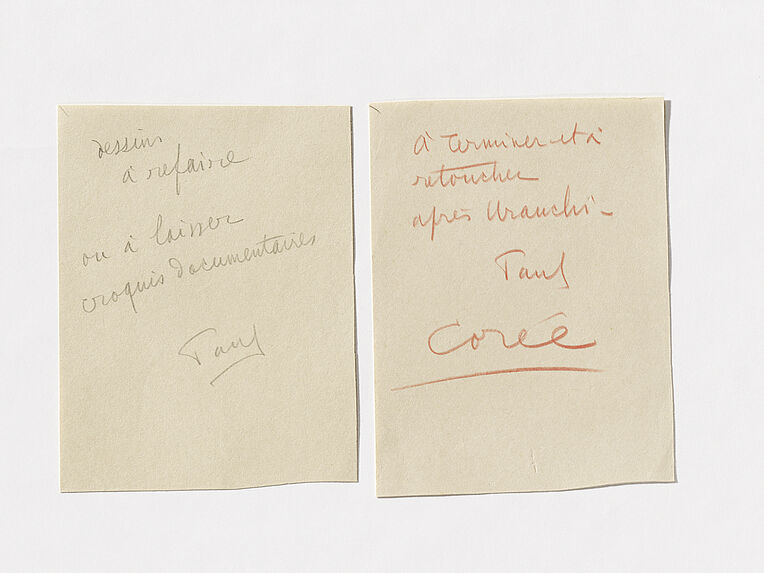 dessins
à refaire
ou à laisser
croquis documentaires
à terminer et à
retoucher
après
Corée